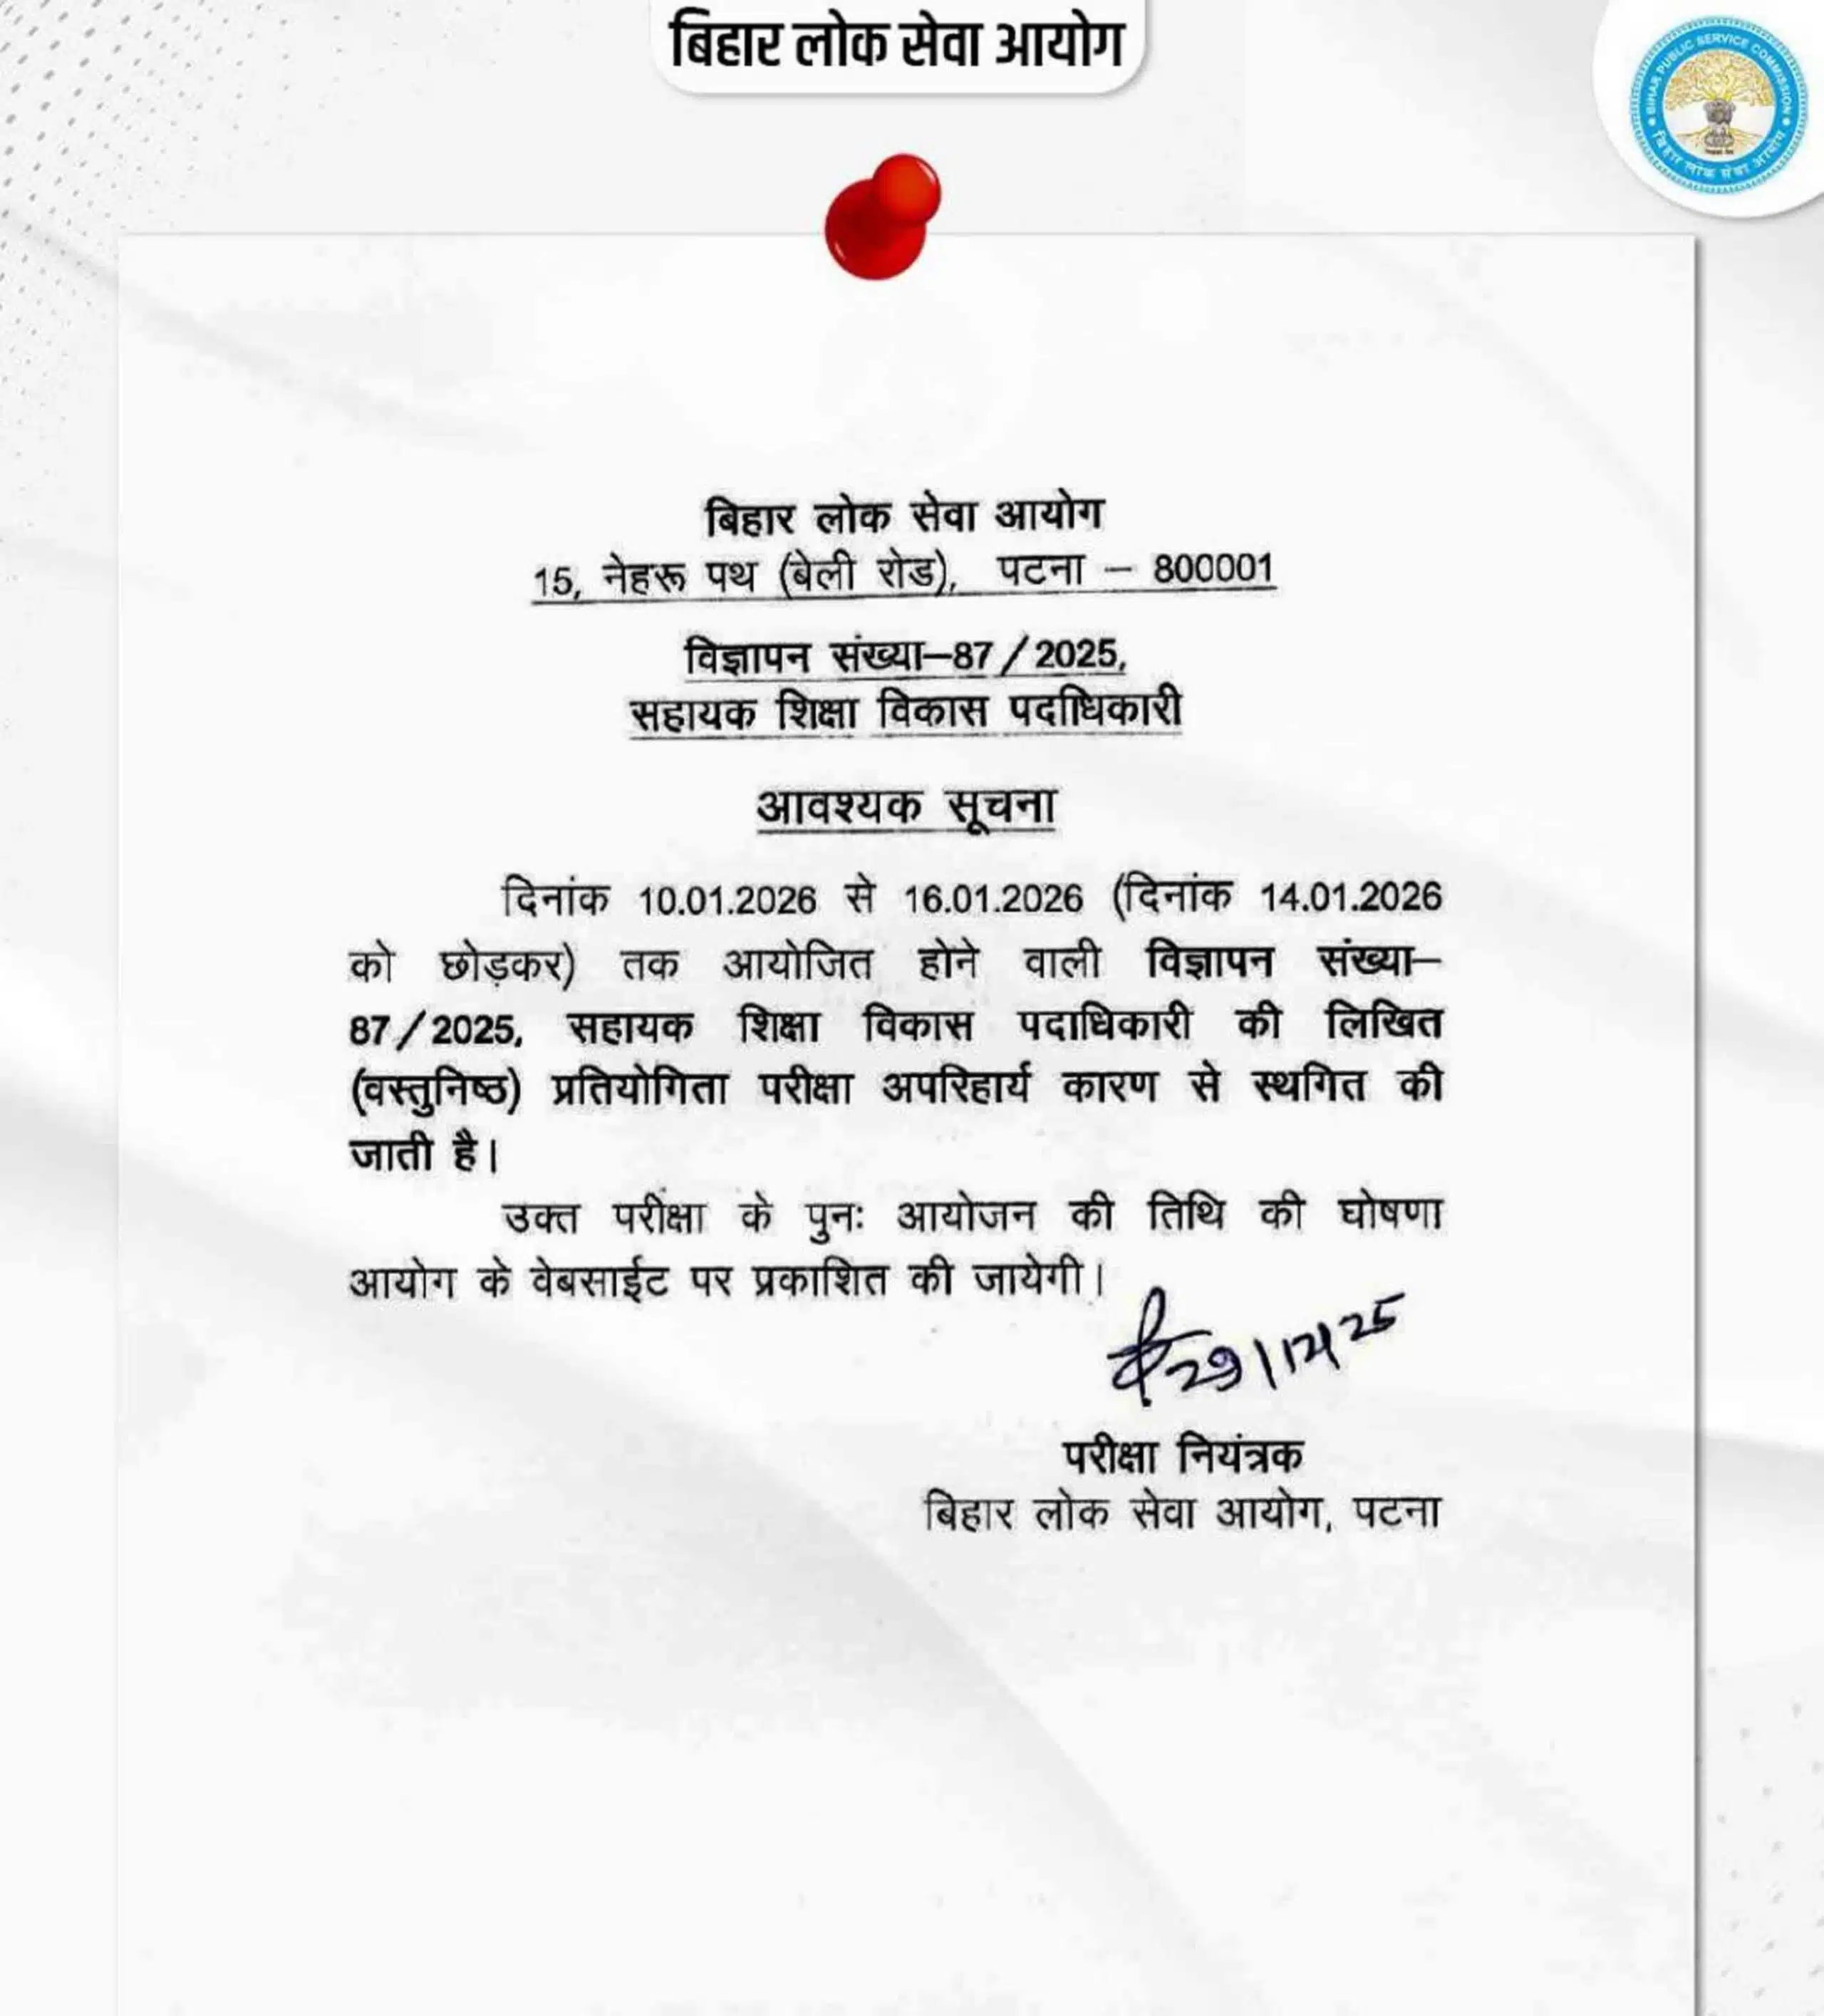 बिहार लोक सेवा आयोग
BIHAR PUBLIC SERVICE COMMISSION
बिहार लोक सेवा आयोग
बिहार लोक सेवा आयोग
15, नेहरू पथ (बेली रोड), पटना – 800001
विज्ञापन संख्या–87/2025,
सहायक शिक्षा विकास पदाधिकारी
आवश्यक सूचना
दिनांक 10.01.2026 से 16.01.2026 (दिनांक 14.01.2026
को छोड़कर) तक आयोजित होने वाली विज्ञापन संख्या–
87/2025, सहायक शिक्षा विकास पदाधिकारी की लिखित
(वस्तुनिष्ठ) प्रतियोगिता परीक्षा अपरिहार्य कारण से स्थगित की
जाती है।
उक्त परीक्षा के पुनः आयोजन की तिथि की घोषणा
आयोग के वेबसाईट पर प्रकाशित की जायेगी।
29/12/25
परीक्षा नियंत्रक
बिहार लोक सेवा आयोग, पटना